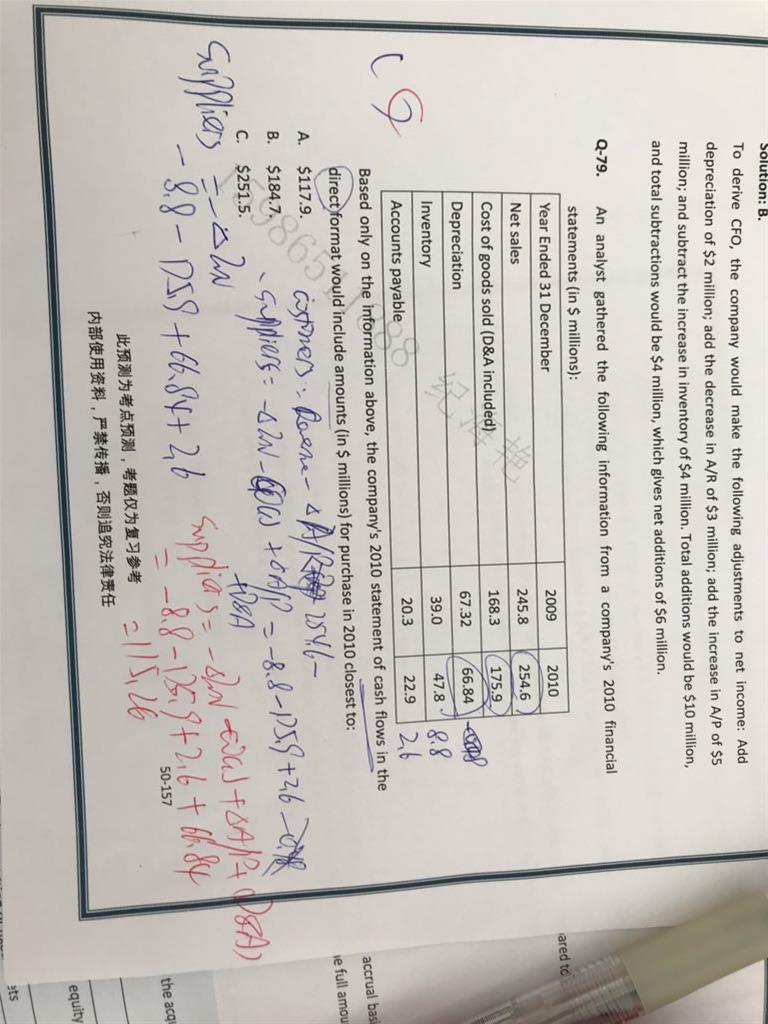 Solution: B.
To derive CFO, the company would make the following adjustments to net income: Add
depreciation of $2 million; add the decrease in A/R of $3 million; add the increase in A/P of $5
million; and subtract the increase in inventory of $4 million. Total additions would be $10 million,
and total subtractions would be $4 million, which gives net additions of $6 million.
Q-79. An analyst gathered the following information from a company's 2010 financial
statements (in $ millions):
Year Ended 31 December 2009 2010
Net sales 245.8 254.6
Cost of goods sold (D&A included) 168.3 175.9
Depreciation 67.32 66.84
Inventory 39.0 47.8 8.8
Accounts payable 20.3 22.9 2.6
Based only on the information above, the company's 2010 statement of cash flows in the
direct format would include amounts (in $ millions) for purchase in 2010 closest to:
A. $117.9.
B. $184.7.
C. $251.5.
C
15986511888 纪海艳
customers: Revenue - ΔA/R 254.6 -
suppliers = -ΔIN - COGS + ΔA/P = -8.8 - 175.9 + 2.6
+D&A
suppliers = -ΔIN
- 8.8 - 175.9 + 66.84 + 2.6
suppliers = -ΔIN - COGS + ΔA/P + (D&A)
= -8.8 - 175.9 + 2.6 + 66.84
= 115.26
50-157
此预测为考点预测，考题仅为复习参考
内部使用资料，严禁传播，否则追究法律责任
ared to
accrual basi
e full amou
the acqu
equity
ets